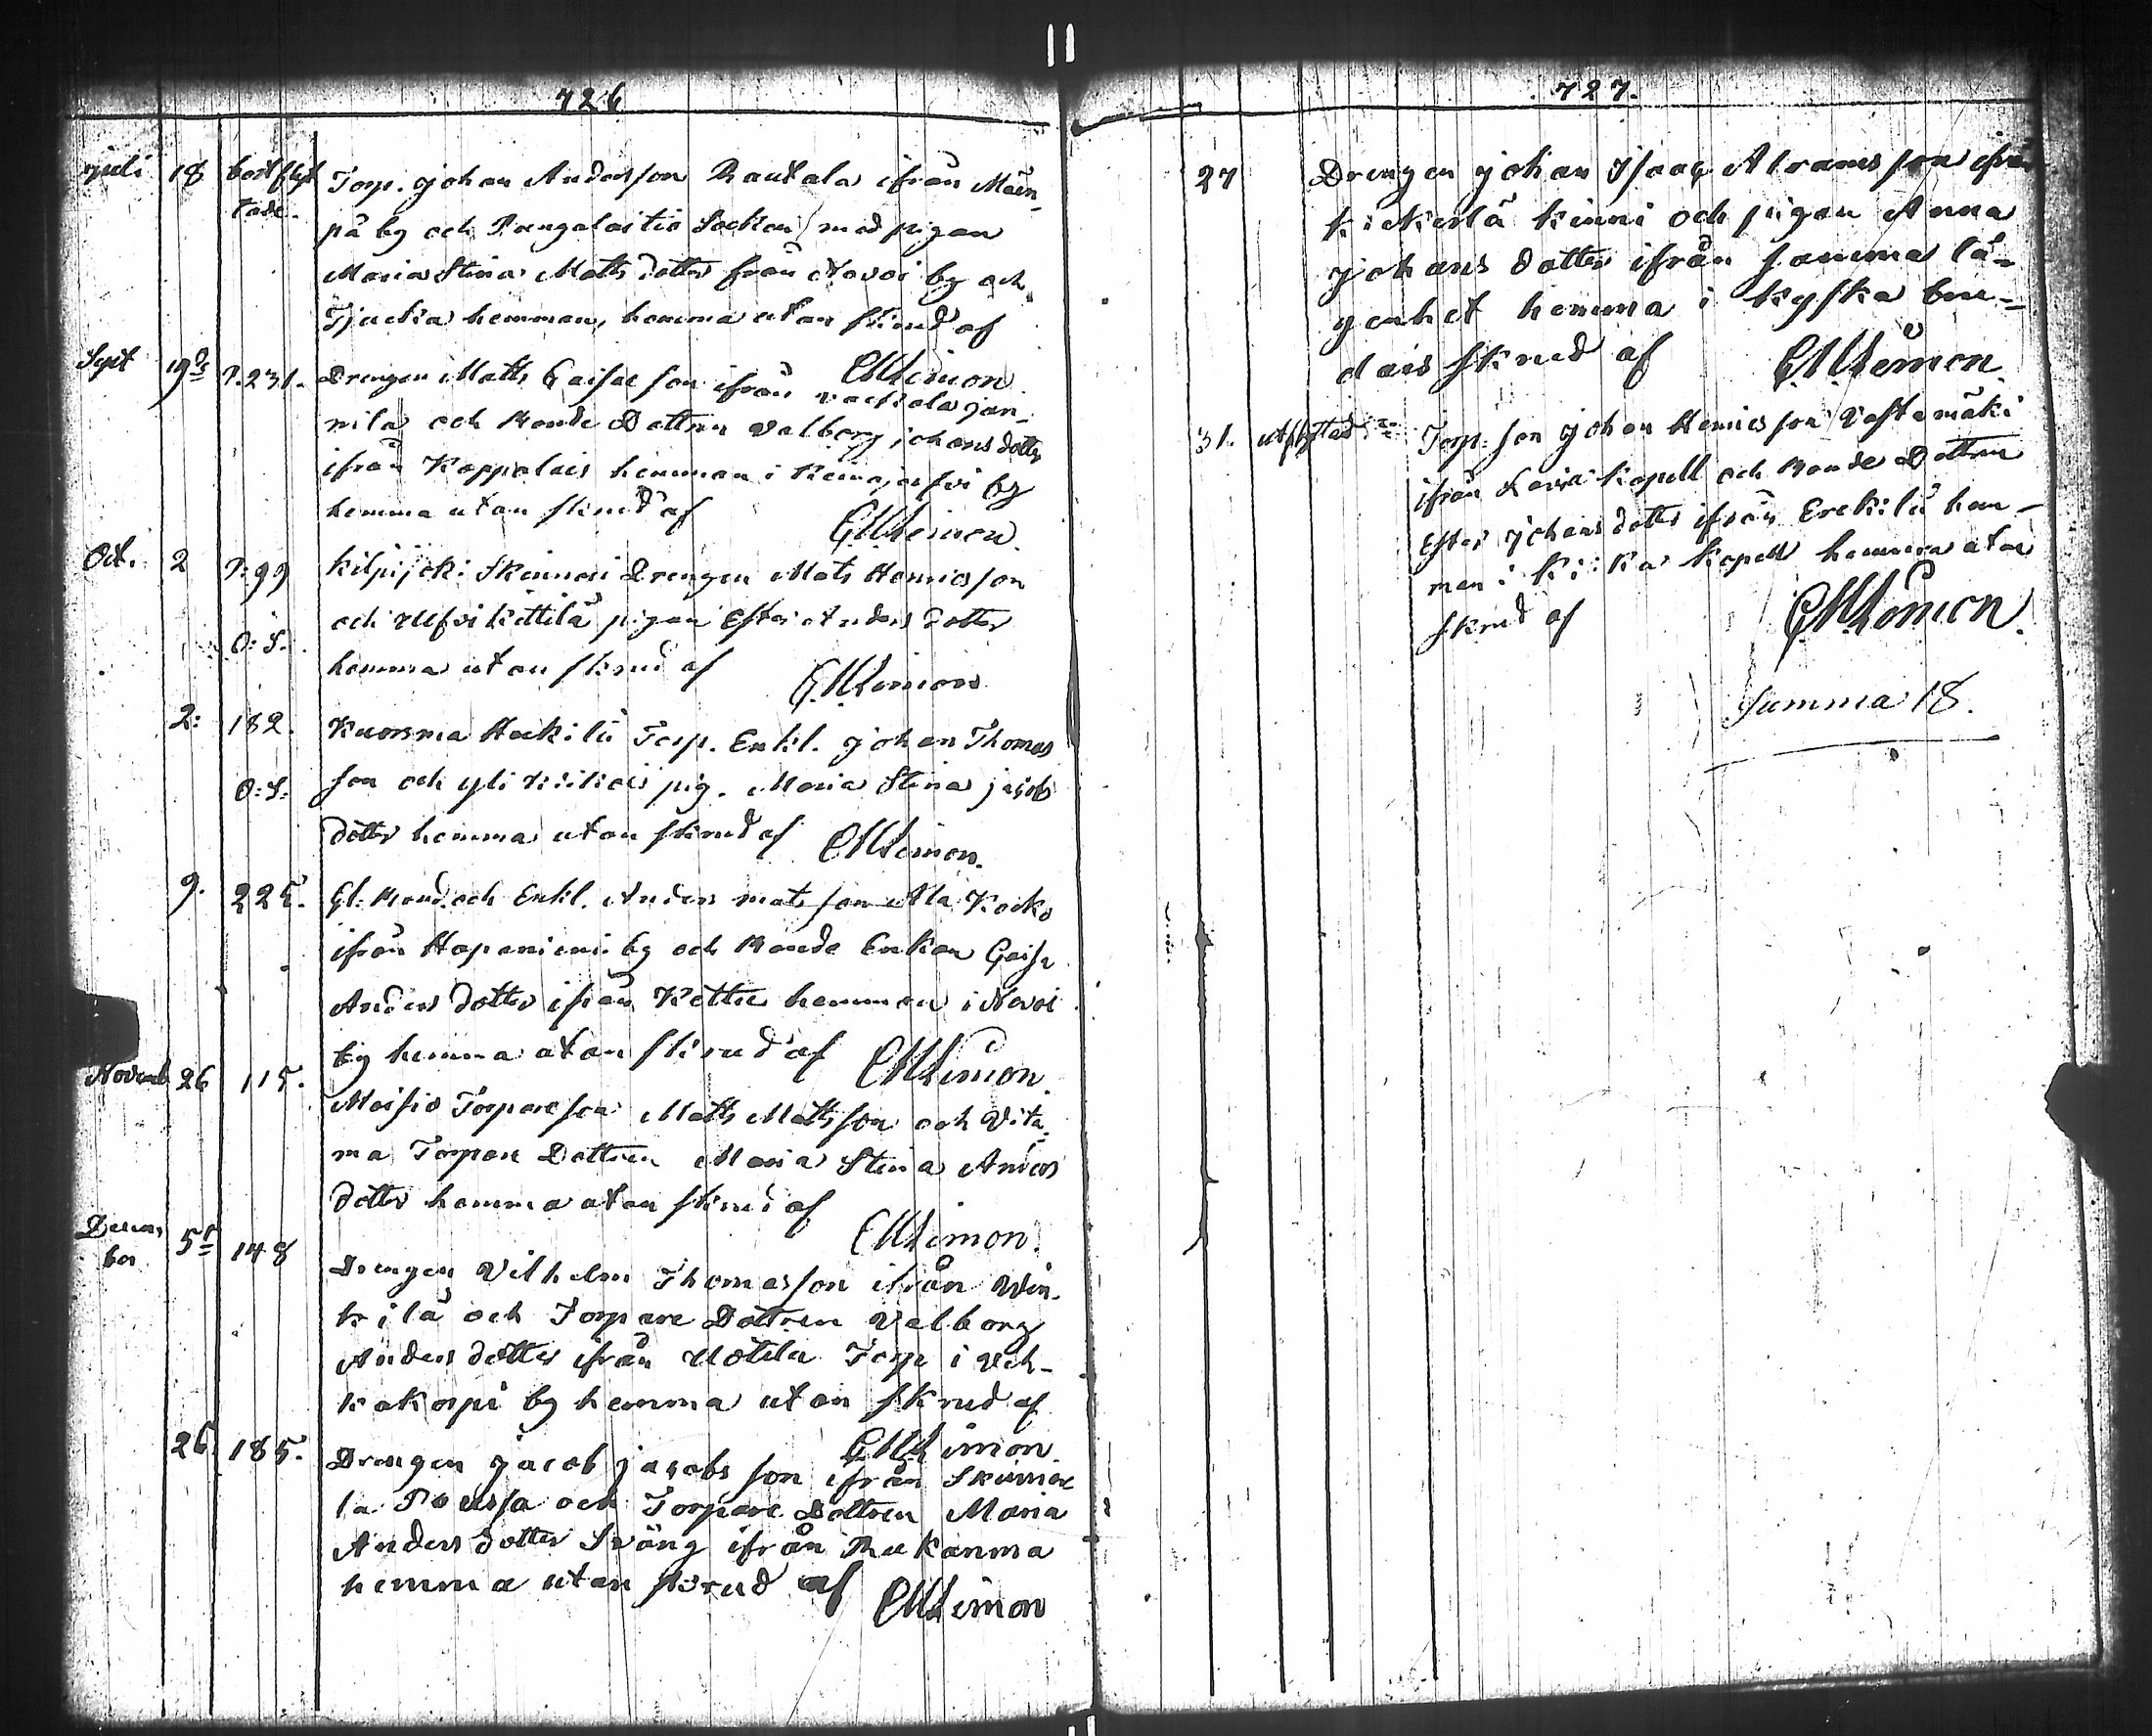 726
juli 18 bortflyt Torp. Johan Andersson Rautala ifrån Mäen-
tade. på by och Pungalaitio Socken med pigan
Maria Stina Matts dotter från Navoi by och
Tjucka hemman, hemma utan skrud af
G M Limon
Sept 19de P. 231. Drengen Matts Caisae son ifrån Jani-
nila och Bonde Dottren Valborg johans dotter
ifrån Koppalais hemman i Kemijerfvi by
hemma utan skrud af
G M Limon.
Oct. 2 P: 99 Kilpijoki Skinnari Drengen Mats Henricsson
O: S. och Ulfvi Kittilä pigan Ester Anders dotter
hemma utan skrud af G M Limon
2: 182. Kuorsma Heikilä Torp. Enkl. Johan Thomas
O: S: son och yli pig. Maria Stina jacobs
dotter hemma utan skrud af G M Limon.
9. 225. Gl: Bond. och Enkl. Anders mats son Ala Kocko
ifrån Hapaniemi by och Bonde Enkan Caisa
Anders dotter ifrån Kettu hemman i Navoi
by hemma utan skrud af G M Limon.
Novemb 26 115. Moisio Torpareson Matts Mattsson och Vita-
ma Torpare Dottren Maria Stina Anders
dotter hemma utan skrud af
G M Limon.
Decem- 5t 148 Drengen Vilhelm Thomasson ifrån Vin-
ber kilä och Torpare Dottren Valborg
Anders dotter ifrån Torp i Veh-
kakorpi by hemma utan skrud af
G M Limon
26. 185. Drengen Jacob Jacobs son ifrån Skinnar
la Poussa och Torpare Dottren Maria
Anders dotter Sväng ifrån Rukanma
hemma utan skrud af G M Limon
727.
27 Drengen Johan Isaac Abrams son ifrån
Kickerlä Kinni och pigan Anna
Johans dotter ifrån samma lä-
genhet hemma i kyska bru-
dars skrud af G M Limon
31. utflyttad Torp. son Johan Henricsson Vastamäki
ifrån Lavia Kapell och Bonde Dottren
Ester Johans dotter ifrån Erckilä hem-
man i Kiika Kapell hemma utan
skrud af G M Limon.
Summa 18.